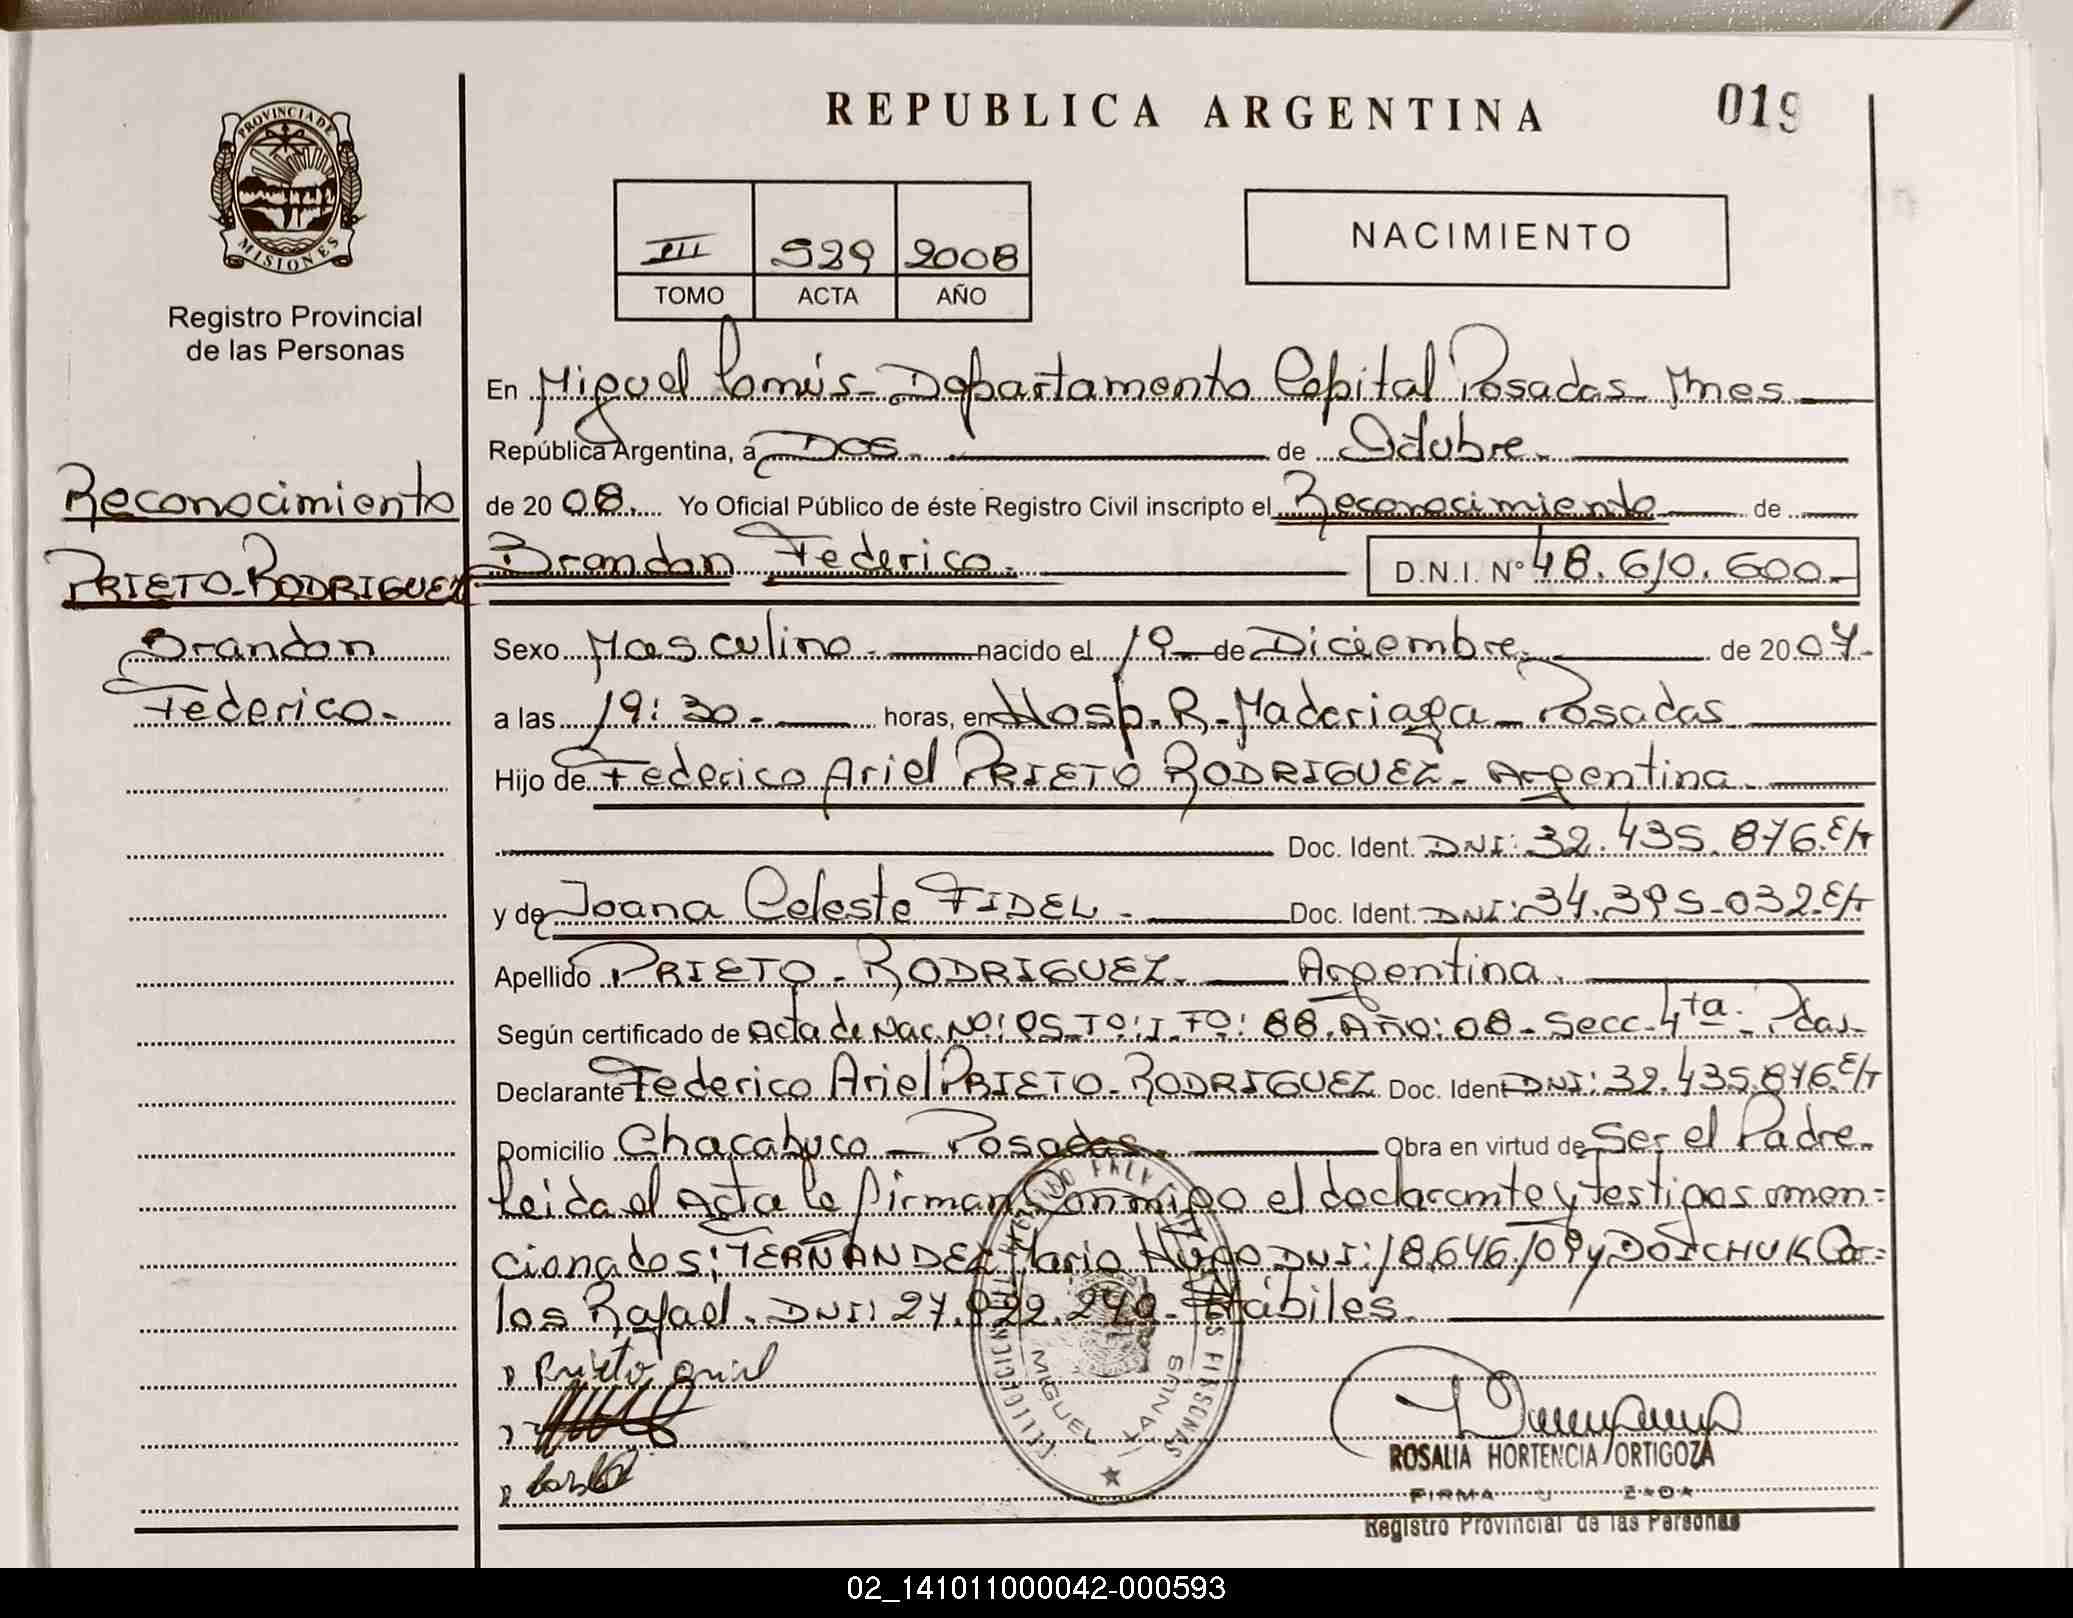 REPUBLICA ARGENTINA
019
PROVINCIA DE
MISIONES
Registro Provincial
de las Personas
III 529 2008
TOMO ACTA AÑO
NACIMIENTO
En Miguel Lanús - Departamento Capital Posadas Mnes
República Argentina, a Dos de Octubre
de 2008 Yo Oficial Público de éste Registro Civil inscripto el Reconocimiento de
Brandon Federico D.N.I. Nº 48.610.600-
Reconocimiento
PRIETO-RODRIGUEZ
Brandon
Federico.-
Sexo Masculino nacido el 19 de Diciembre de 2007-
a las 19:30- horas, en Hosp. R. Madariaga - Posadas
Hijo de Federico Ariel PRIETO RODRIGUEZ - Argentina
Doc. Ident. DNI: 32.435.876 E/T
y de Joana Celeste FIDEL - Doc. Ident. DNI: 34.395.032 E/T
Apellido PRIETO - RODRIGUEZ. Argentina.
Según certificado de Acta de Nac. Nº: 95-Tº: I-Fº: 88. Año: 08 - Secc. 4ta. Pdas-
Declarante Federico Ariel PRIETO-RODRIGUEZ Doc. Ident DNI: 32.435.876 E/T
Domicilio Chacabuco - Posadas. Obra en virtud de Ser el Padre.
Leida el Acta la firman Conmigo el declarante y testigos mmen=
cionados: FERNANDEZ Mario Hugo DNI: 18.646.109 y DOICHUK Car=
los Rafael. DNI: 27.922.242- Hábiles.
Prieto ariel
MIGUEL LANUS
ROSALIA HORTENCIA ORTIGOZA
Registro Provincial de las Personas
02_141011000042-000593